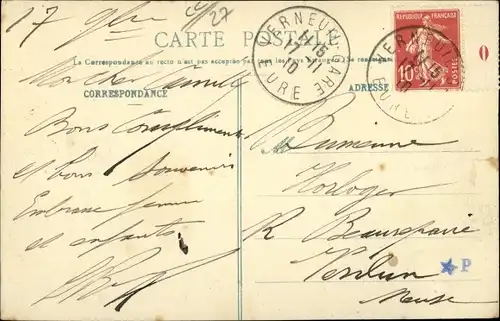 17 9bre
27
CARTE POSTALE
La Correspondance au recto n'est pas acceptée par tous les pays étrangers (Se renseigner
CORRESPONDANCE
ADRESSE
VERNEUIL-GARE
11-15
17-11
10
EURE
REPUBLIQUE FRANÇAISE
10
POSTES
Mon cher
Bons Compliments
et bons souvenirs
Embrasse femme
et enfants
Horloger
R Beaurepaire
Verdun
Meuse
P